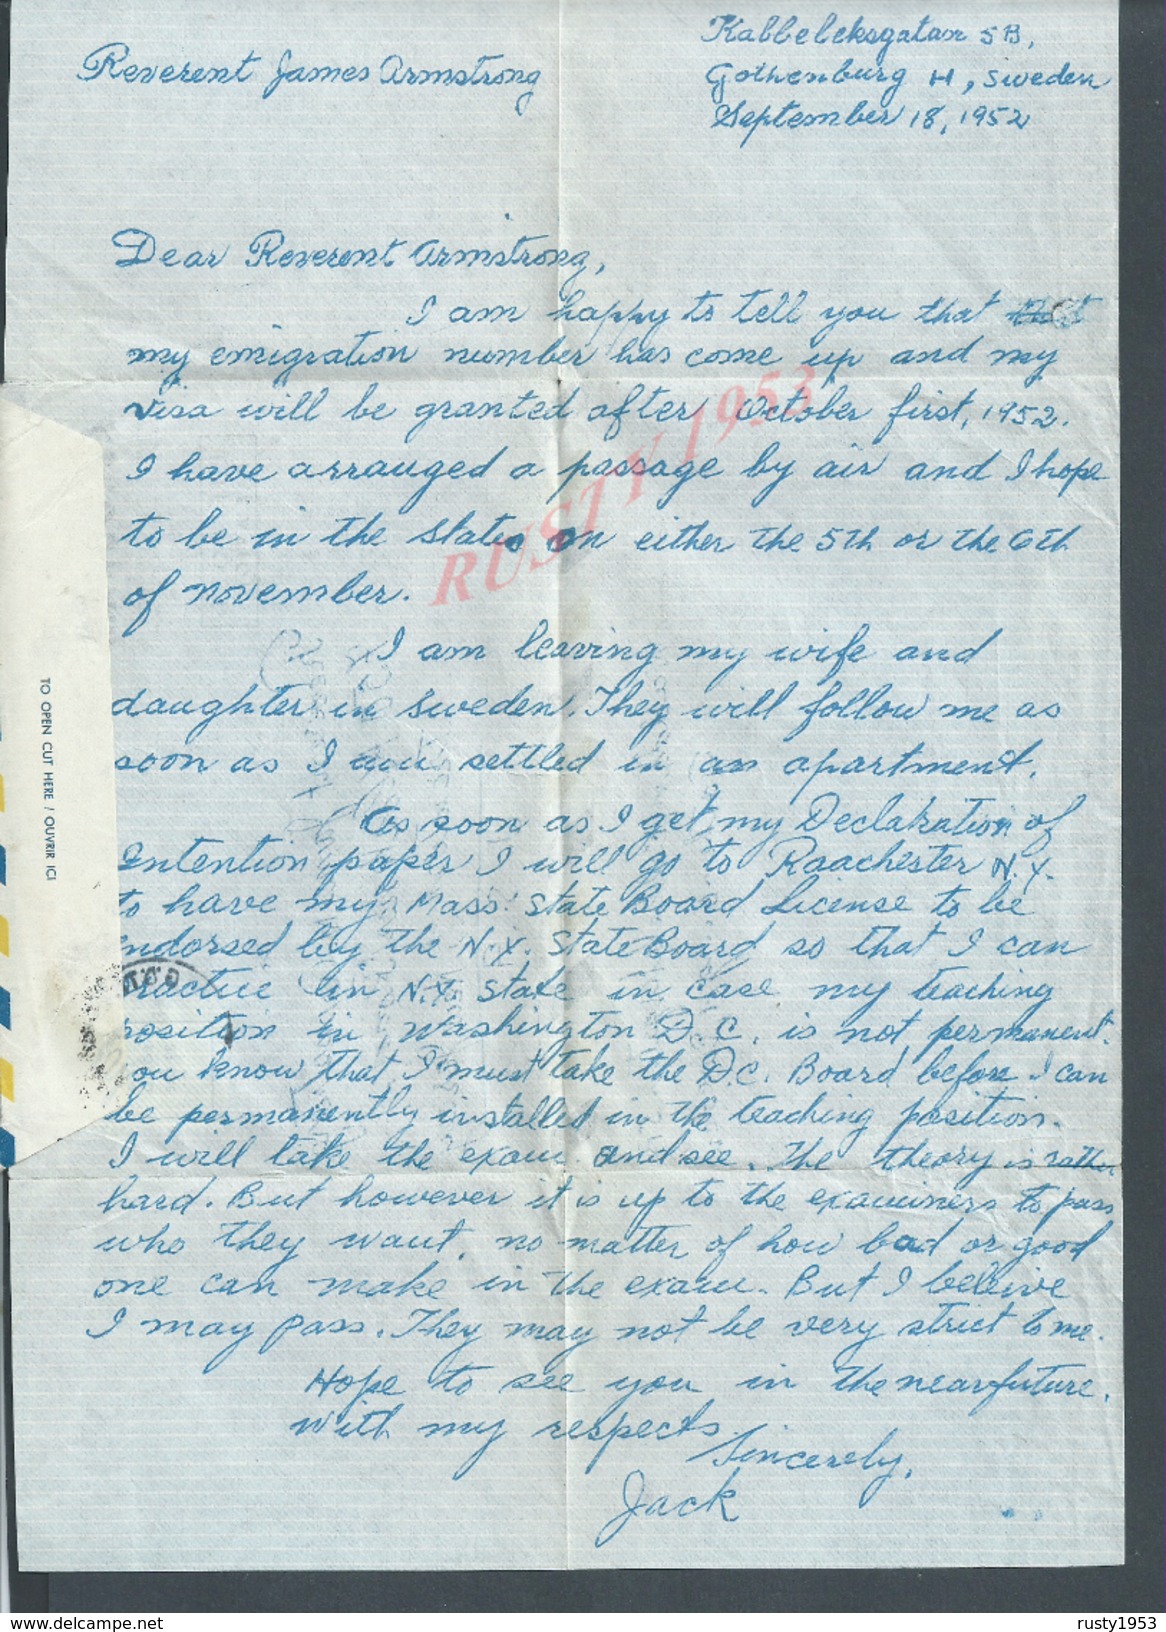 Kabbeleksgatan 5B,
Reverent James Armstrong
Gothenburg H, Sweden
September 18, 1952
Dear Reverent Armstrong,
I am happy to tell you that
my emigration number has come up and my
visa will be granted after October first, 1952.
I have arranged a passage by air and I hope
to be in the states on either the 5th or the 6th
of November.
I am leaving my wife and
daughter in Sweden. They will follow me as
soon as I am settled in an apartment.
As soon as I get my Declaration of
Intention paper I will go to Raachester N.Y.
to have my Mass. State Board License to be
endorsed by the N.Y. State Board so that I can
practice in N.Y. State in case my teaching
position in Washington D.C. is not permanent.
You know that I must take the D.C. Board before I can
be permanently installed in the teaching position.
I will take the exam and see. The theory is rather
hard. But however it is up to the examiners to pass
who they want, no matter of how bad or good
one can make in the exam. But I beleive
I may pass. They may not be very strict to me.
Hope to see you in the near future.
With my respects.
Sincerely,
Jack
TO OPEN CUT HERE / OUVRIR ICI
RUSTY 1953
rusty1953